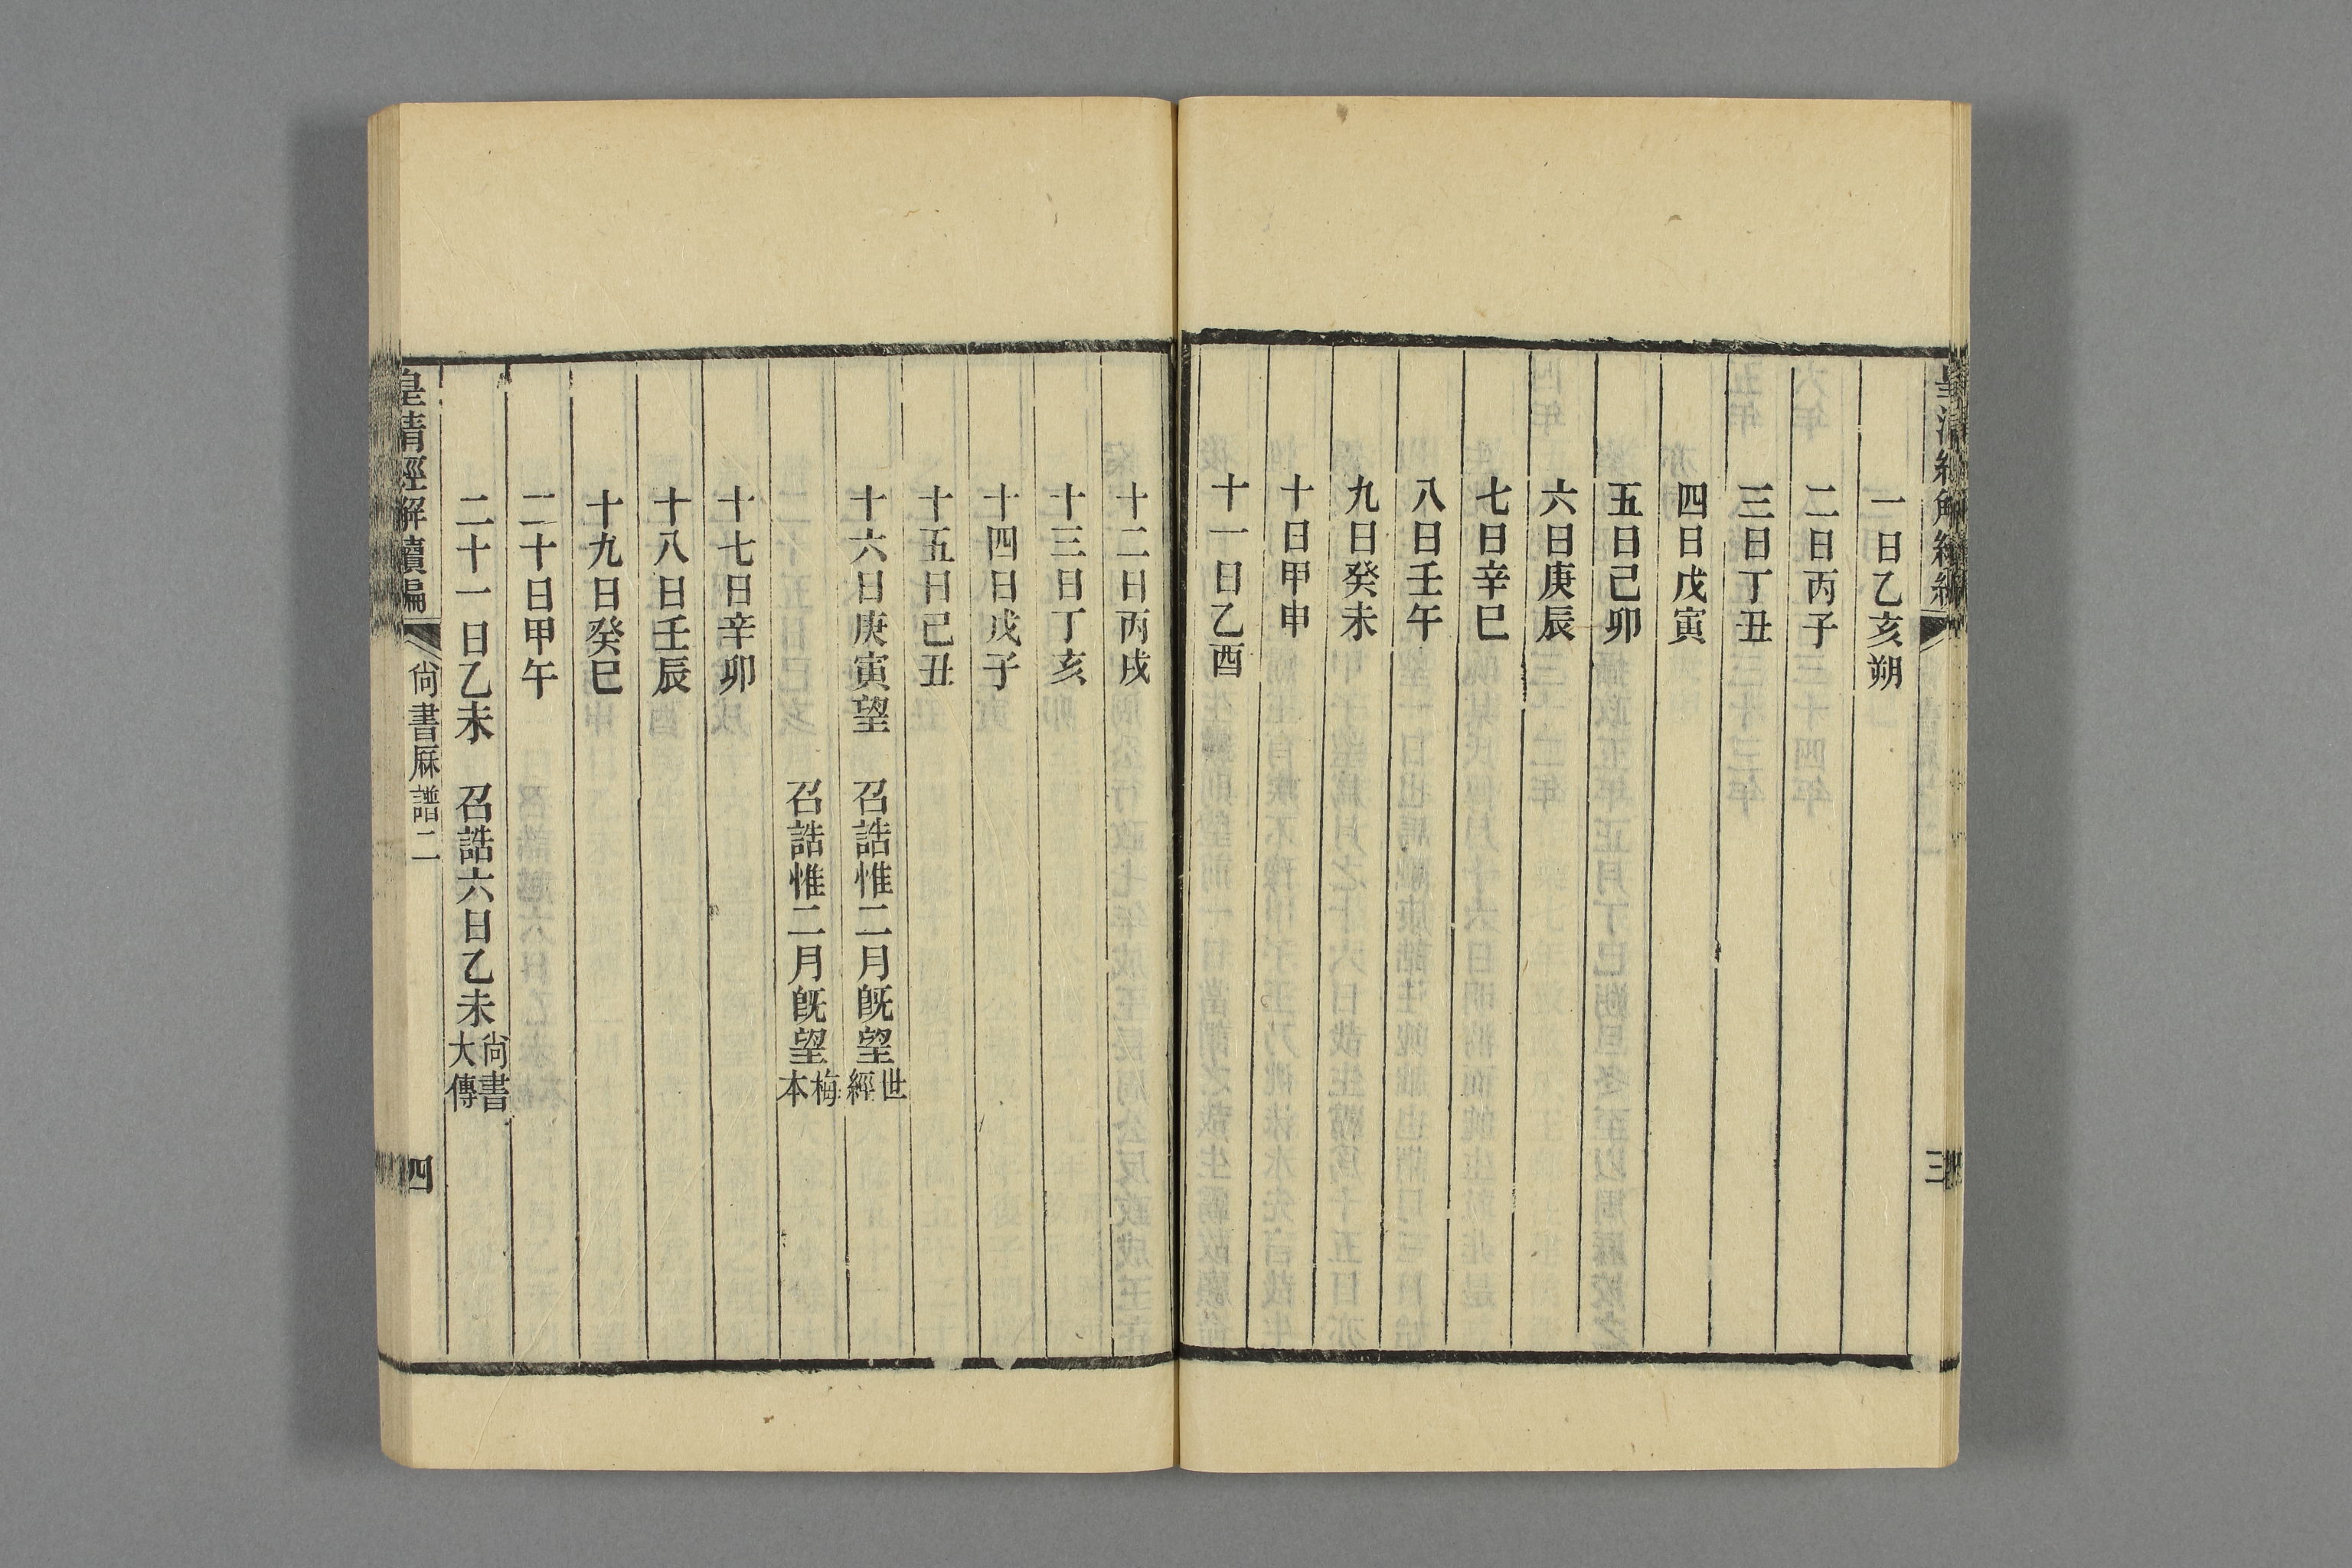 一日乙亥朔
二日丙子
三日丁丑
四日戊寅
五日己卯
六日庚辰
七日辛巳
八日壬午
九日癸未
十日甲申
十一日乙酉
十二日丙戌
十三日丁亥
十四日戊子
十五日己丑
十六日庚寅望　召誥惟二月旣望世經
召誥惟二月旣望梅本
十七日辛卯
十八日壬辰
十九日癸巳
二十日甲午
二十一日乙未　召誥六日乙未尙書大傳
皇清經解續編　尙書厤譜二　四